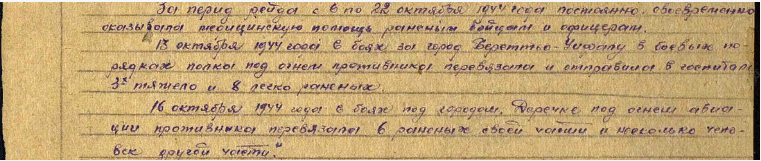 За период рейда с 6 по 22 октября 1944 года постоянно, своевременно
оказывала медицинскую помощь раненым бойцам и офицерам.
13 октября 1944 года в боях за город Береттьо-Уйфалу в боевых по-
рядках полка под огнем противника перевязала и отправила в госпиталь
3х тяжело и 8 легко раненых.
16 октября 1944 года в боях под городом, Даречке под огнем авиа-
ции противника перевязала 6 раненых своей части и несколько чело-
век другой части."